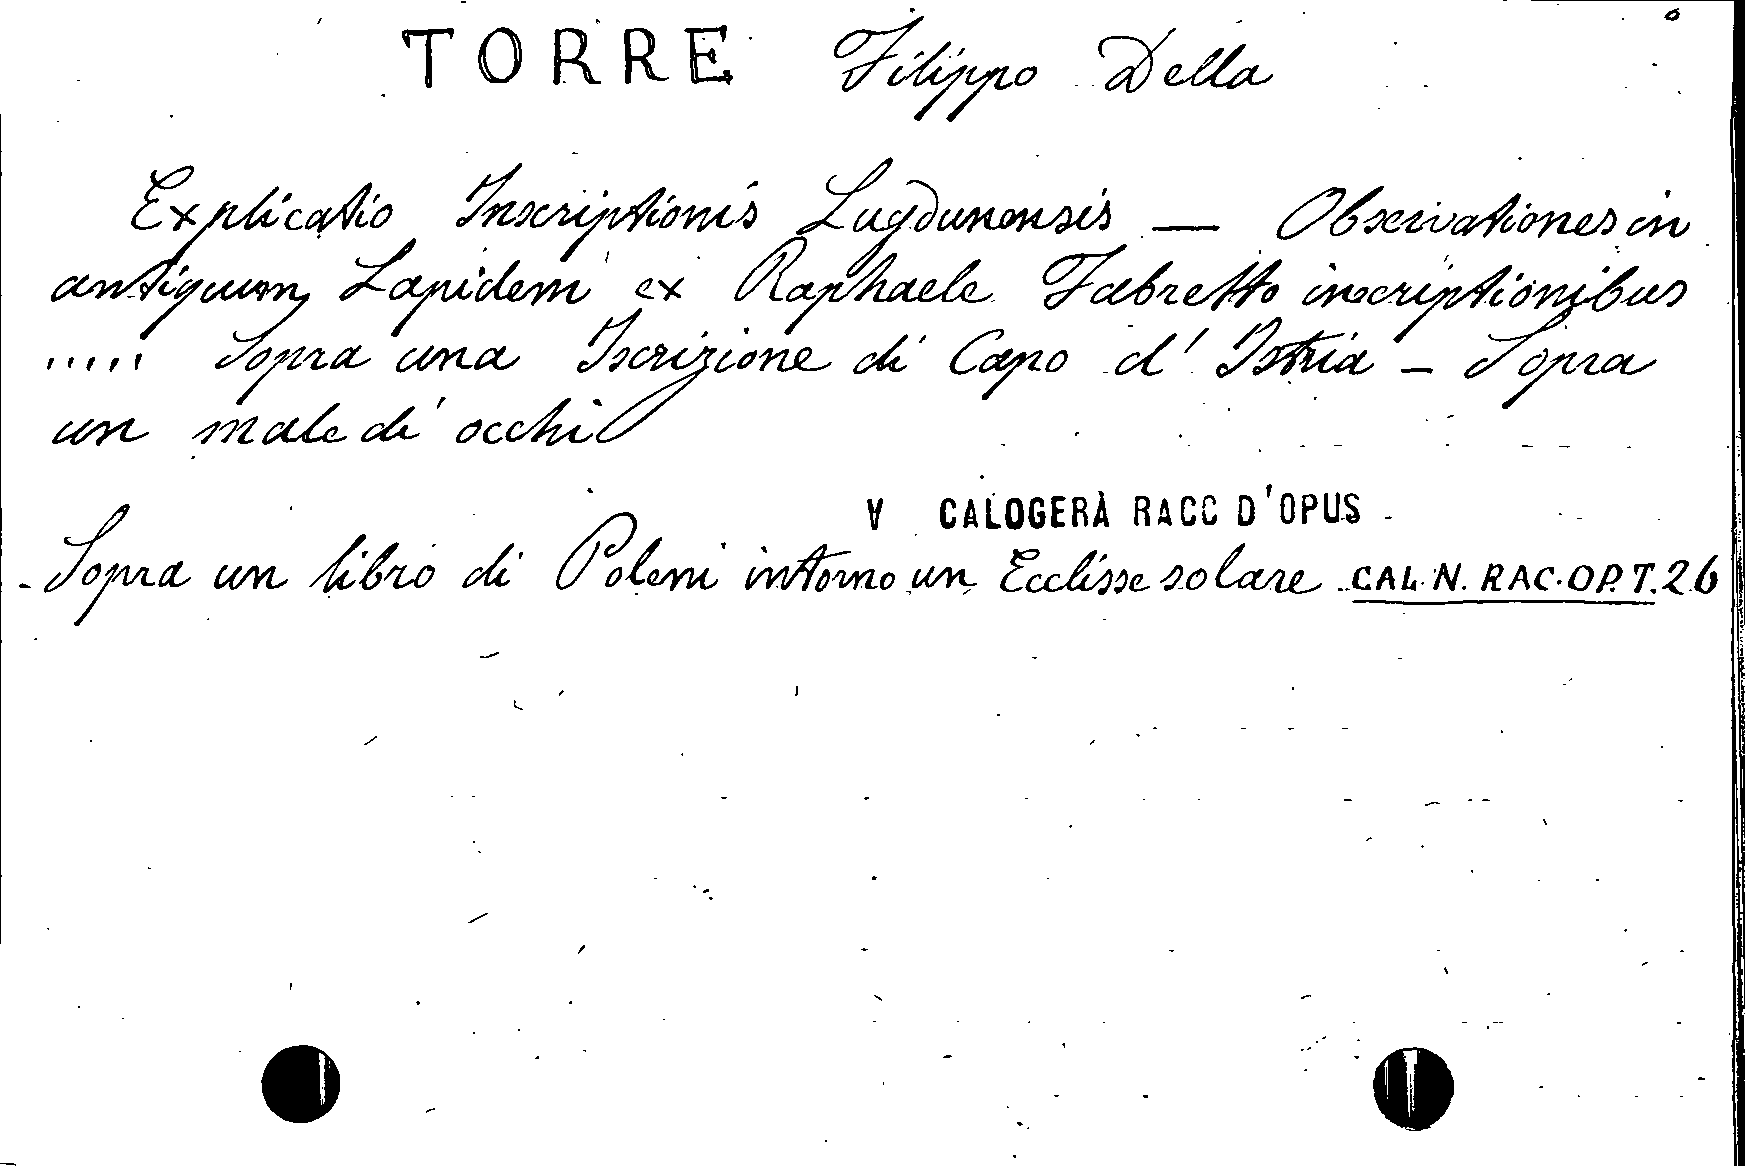 TORRE Filippo Della
Explicatio Inscriptionis Lugdunensis — Observationes in
antiquum Lapidem ex Raphaele Fabretto inscriptionibus
..... Sopra una Iscrizione di Capo d' Istria - Sopra
un male di occhi
V CALOGERÀ RACC D'OPUS
- Sopra un libro di Poleni intorno un Ecclisse solare CAL. N. RAC. OP. T. 26